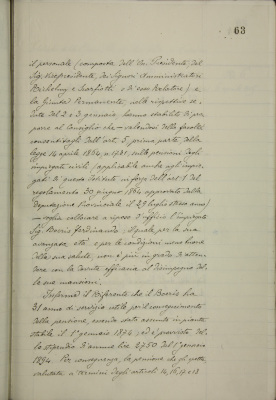 63
il personale (composta dell' On. Presidente, del
Sig. Vicepresidente, dei Signori Amministratori
e
la Giunta Permanente, nelle rispettive se-
dute del 2 e 3 gennaio, hanno stabilito di pro-
porre al Consiglio che – valendosi della facoltà
consentagli dall'art. 5, prima parte, della
legge 14 aprile 1864, n. 1731, sulle pensioni degli
impiegati civili (applicabile anche agli impie-
gati di questo Istituto in forza dell'art. 1 del
regolamento 30 giugno 1864 approvato dalla
Deputazione Provinciale il 29 luglio stesso anno)
– voglia collocare a riposo d'ufficio l'impiegato
Sig. Ferdinando, il quale per la sua
avanzata età e per le condizioni
della sua salute, non è più in grado di atten-
dere con la dovuta efficacia al disimpegno del-
le sue mansioni.
Informa il Riferente che il ha
31 anni di servizio utile per il conseguimento
della pensione, essendo stato assunto in pianta
stabile il 1° gennaio 1874; ed è provvisto del-
lo stipendio d'annue lire 2750 dal 1° gennaio
1894. Per conseguenza, la pensione che gli spetta
valutata a termini degli articoli 14, 16, 17 e 18